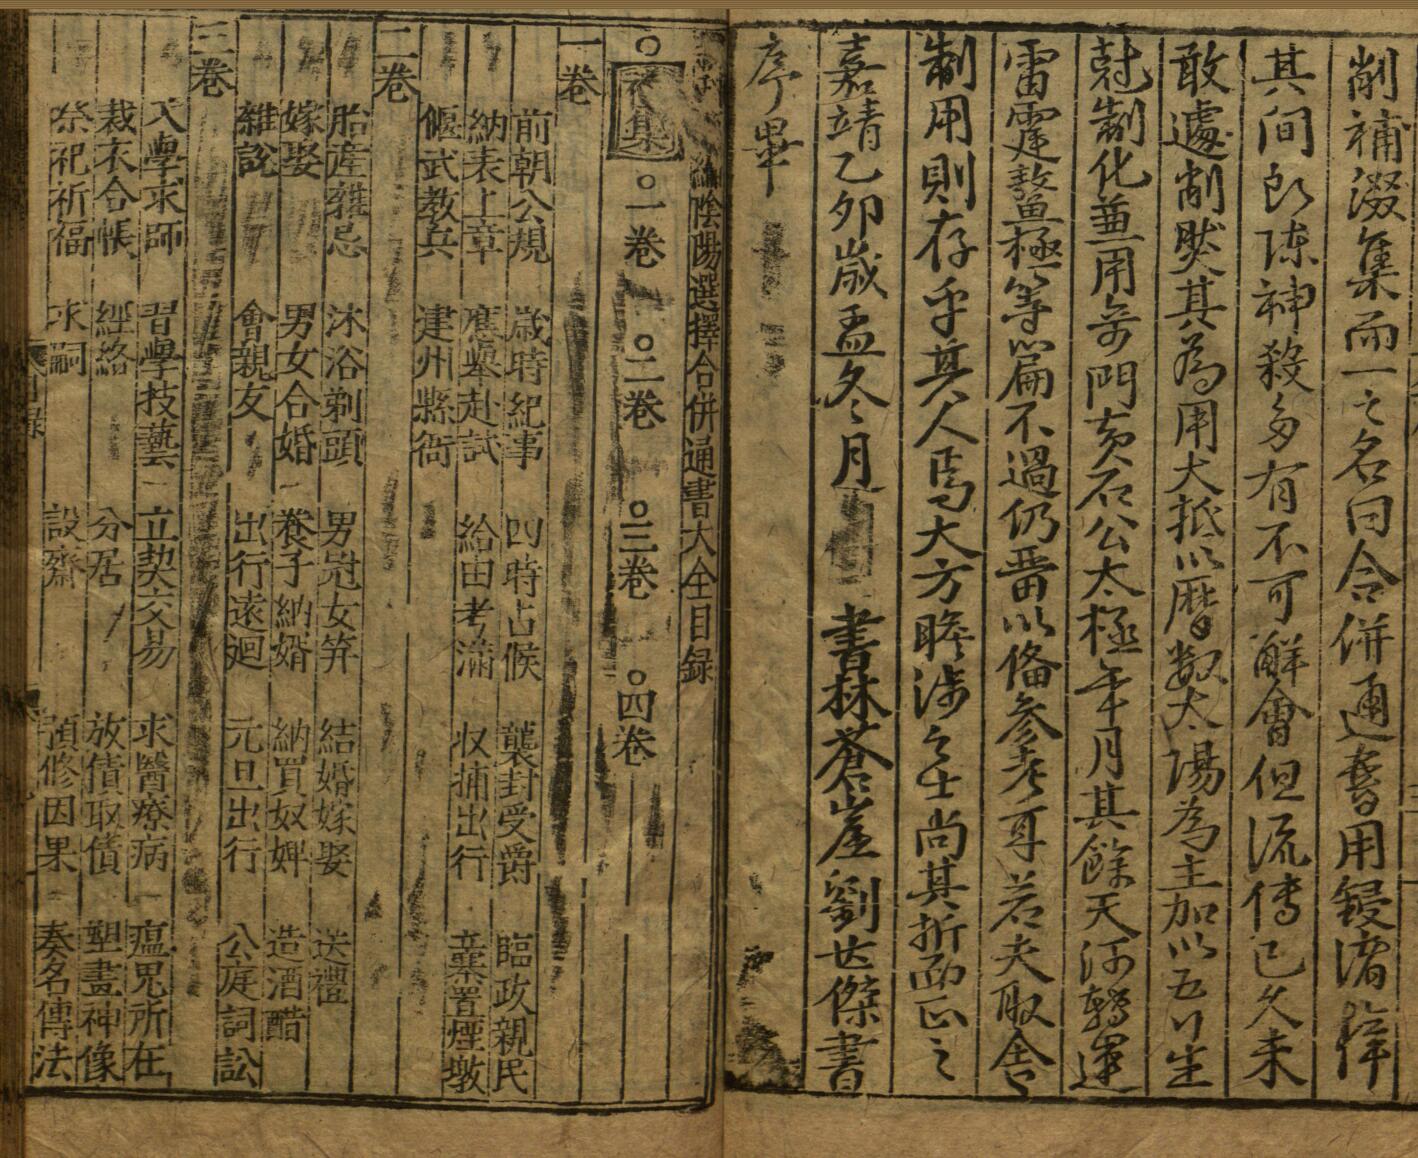 削補濴集而一之名曰合併通書用鋟諸梓
其間所陳神殺多有不可解會但流傳已久未
敢遽削然其為用大抵以曆数太陽為主加以五行生
尅制化兼用奇門黄石公太極年月其餘天河轉運
雷霆鰲極等篇不過仍晋以俻參考耳若夫取舍
制用則存乎其人焉大方瞻涉之士尚其折而正之
嘉靖乙卯歲孟冬月 書林蒼崖劉世傑書
序畢
陰陽選擇合併通書大全目録
○集 ○一卷 ○二卷 ○三卷 ○四卷
一卷
前朝公規 歲時紀事 四時占候 襲封受爵 臨政親民
納表上章 應舉赴試 給由考滿 収捕出行 立寨置煙墩
偃武教兵 建州縣衙
二卷
胎産雜忌 沐浴剃頭 男冠女笄 結婚嫁娶 送禮
嫁娶 男女合婚 養子納婿 納買奴婢 造酒醋
雜説 會親友 出行遠迴 元旦出行 公庭詞訟
三卷
入學求師 習學技藝 立契交易 求醫療病 瘟鬼所在
裁衣合帳 經絡 分居 放債取債 塑畫神像
祭祀祈福 求嗣 設齋 預修因果 奏名傳法